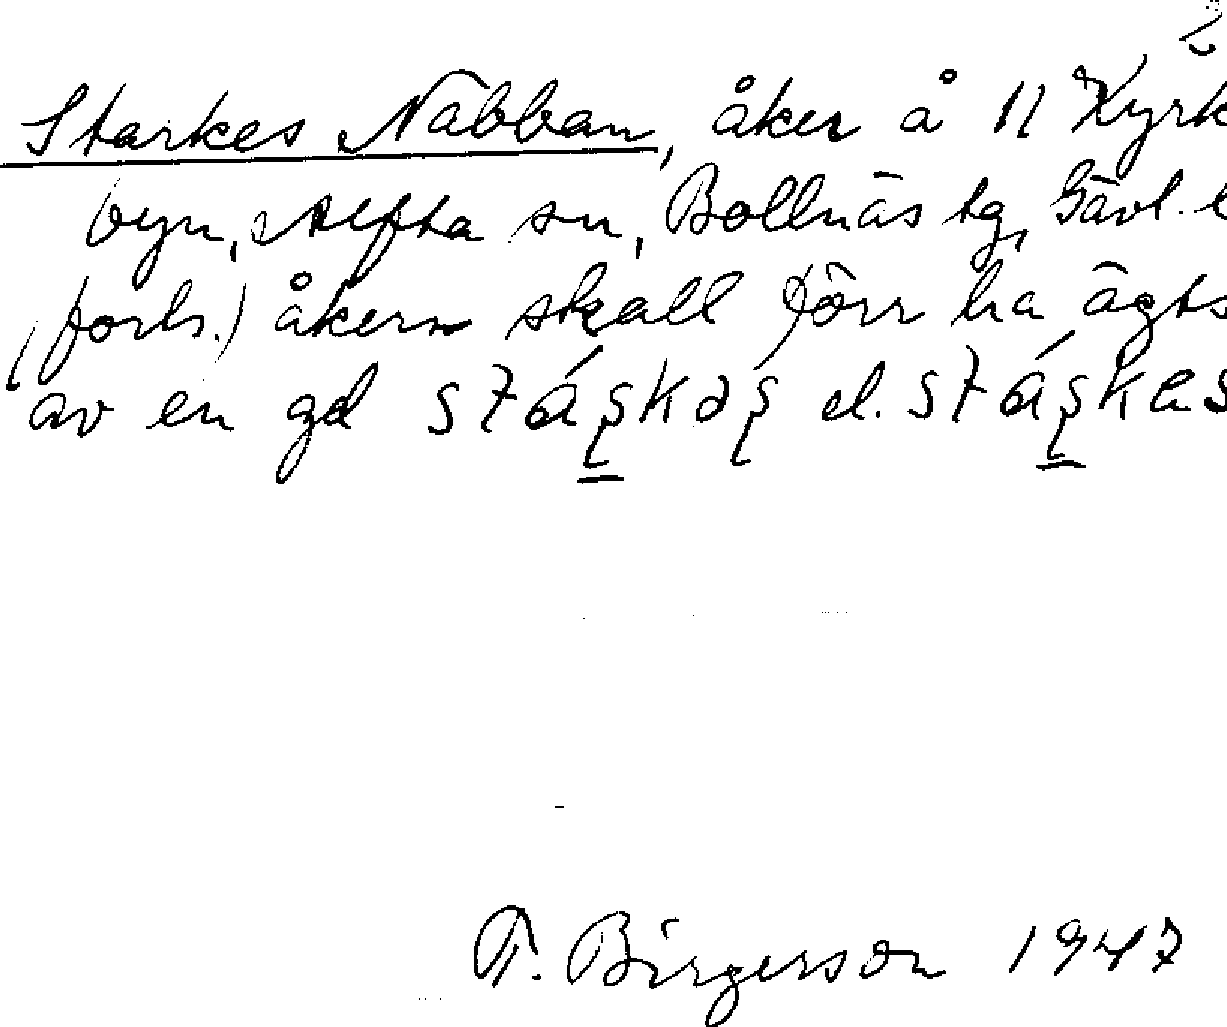 2
Starkes Nabban, åker å 11 Kyrk
byn, Alfta sn, Bollnäs tg, Gävl. l
(forts.) åkern skall förr ha ägts
av en gd el.
T. Birgerson 1947